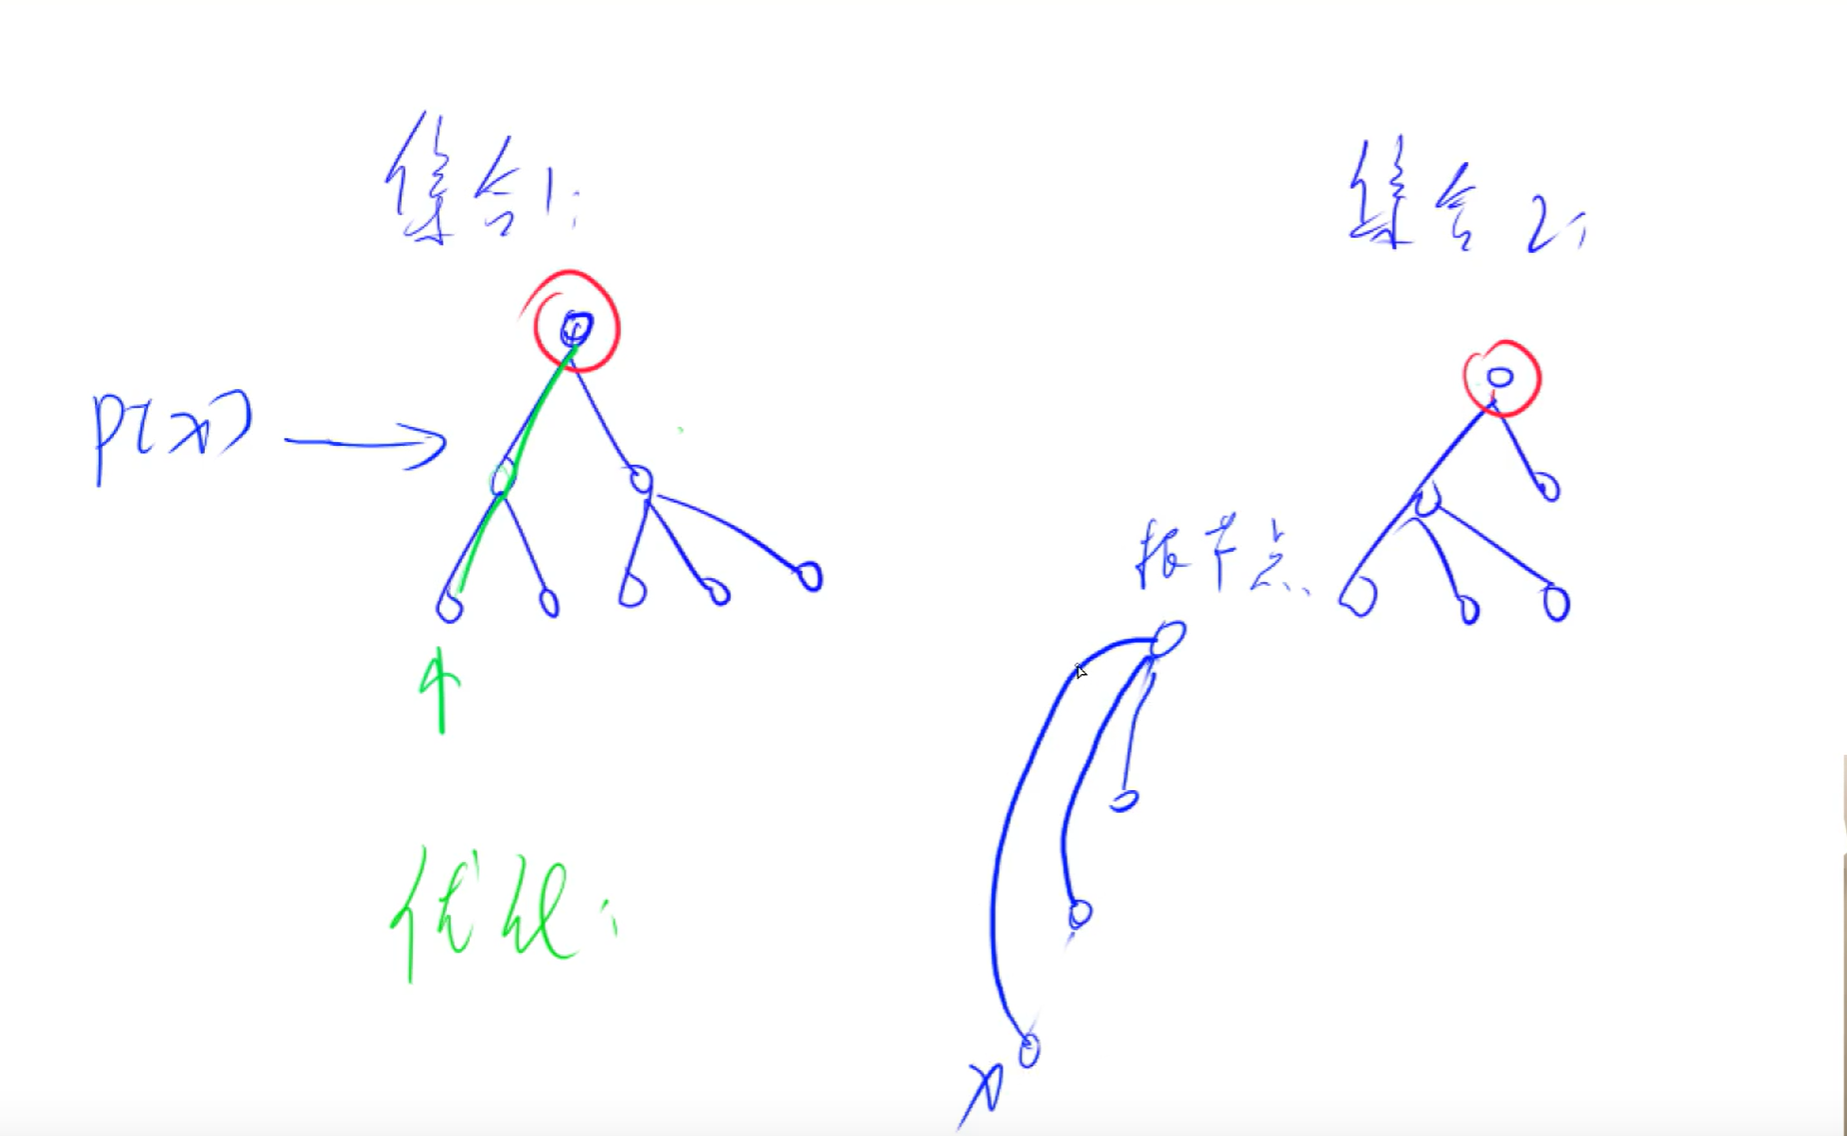 集合1:
集合2:
p[x]
根节点
优化:
x